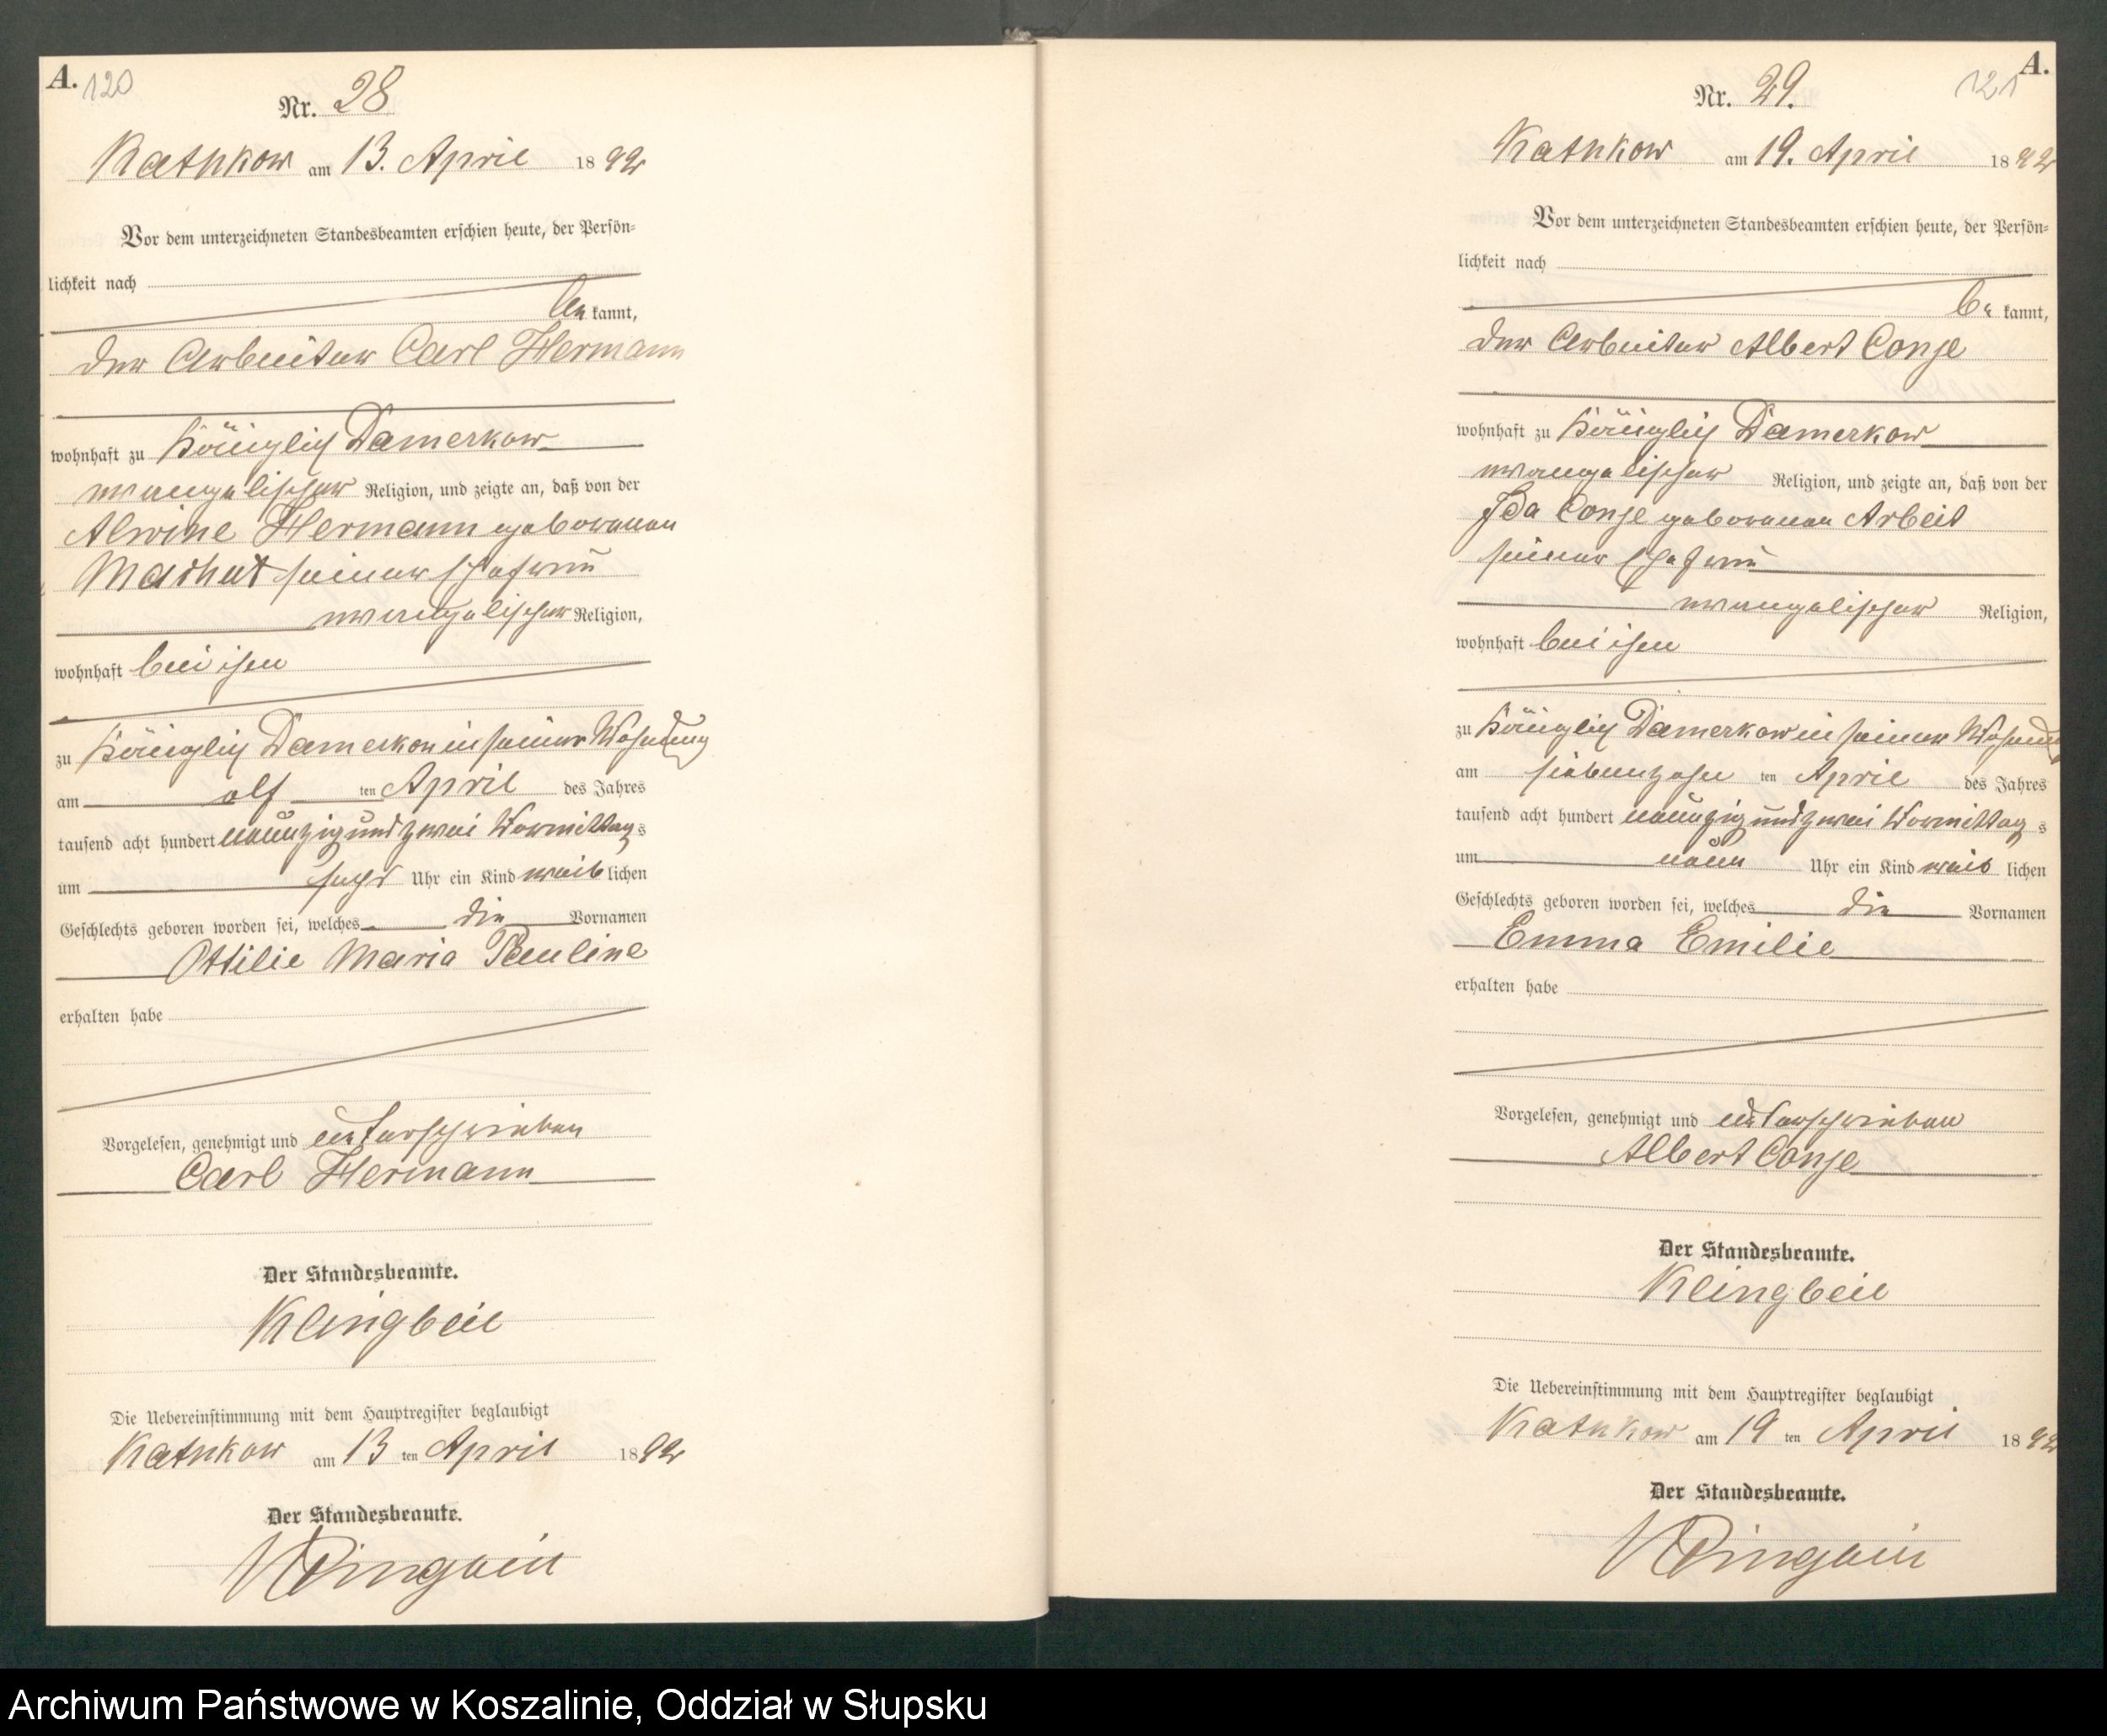 A. 120
Nr. 28
Kathkow am 13. April 1892
Vor dem unterzeichneten Standesbeamten erschien heute, der Persön-
lichkeit nach
be kannt,
der Arbeiter Carl Hermann
wohnhaft zu Königlich Damerkow
evangelischer Religion, und zeigte an, daß von der
Alwine Hermann geborenen
seiner Ehefrau
evangelischer Religion,
wohnhaft bei ihm
zu Königlich Damerkow in seiner Wohnung
am elf ten April des Jahres
tausend acht hundert neunzig und zwei Vormittags
um sechs Uhr ein Kind weiblichen
Geschlechts geboren worden sei, welches die Vornamen
Ottilie Maria Pauline
erhalten habe
Vorgelesen, genehmigt und unterschrieben
Carl Hermann
Der Standesbeamte.
Klingbeil
Die Uebereinstimmung mit dem Hauptregister beglaubigt
Kathkow am 13 ten April 1892
Der Standesbeamte.
Klingbeil
A.
121
Nr. 29.
Kathkow am 19. April 1892
Vor dem unterzeichneten Standesbeamten erschien heute, der Persön-
lichkeit nach
be kannt,
der Arbeiter Albert Conje
wohnhaft zu Königlich Damerkow
evangelischer Religion, und zeigte an, daß von der
Ida Conje geborenen Arbeit
seiner Ehefrau
evangelischer Religion,
wohnhaft bei ihm
zu Königlich Damerkow in seiner Wohnung
am siebenzehn ten April des Jahres
tausend acht hundert neunzig und zwei Vormittags
um neun Uhr ein Kind weiblichen
Geschlechts geboren worden sei, welches die Vornamen
Emma Emilie
erhalten habe
Vorgelesen, genehmigt und unterschrieben
Albert Conje
Der Standesbeamte.
Klingbeil
Die Uebereinstimmung mit dem Hauptregister beglaubigt
Kathkow am 19 ten April 1892
Der Standesbeamte.
Klingbeil
Archiwum Państwowe w Koszalinie, Oddział w Słupsku